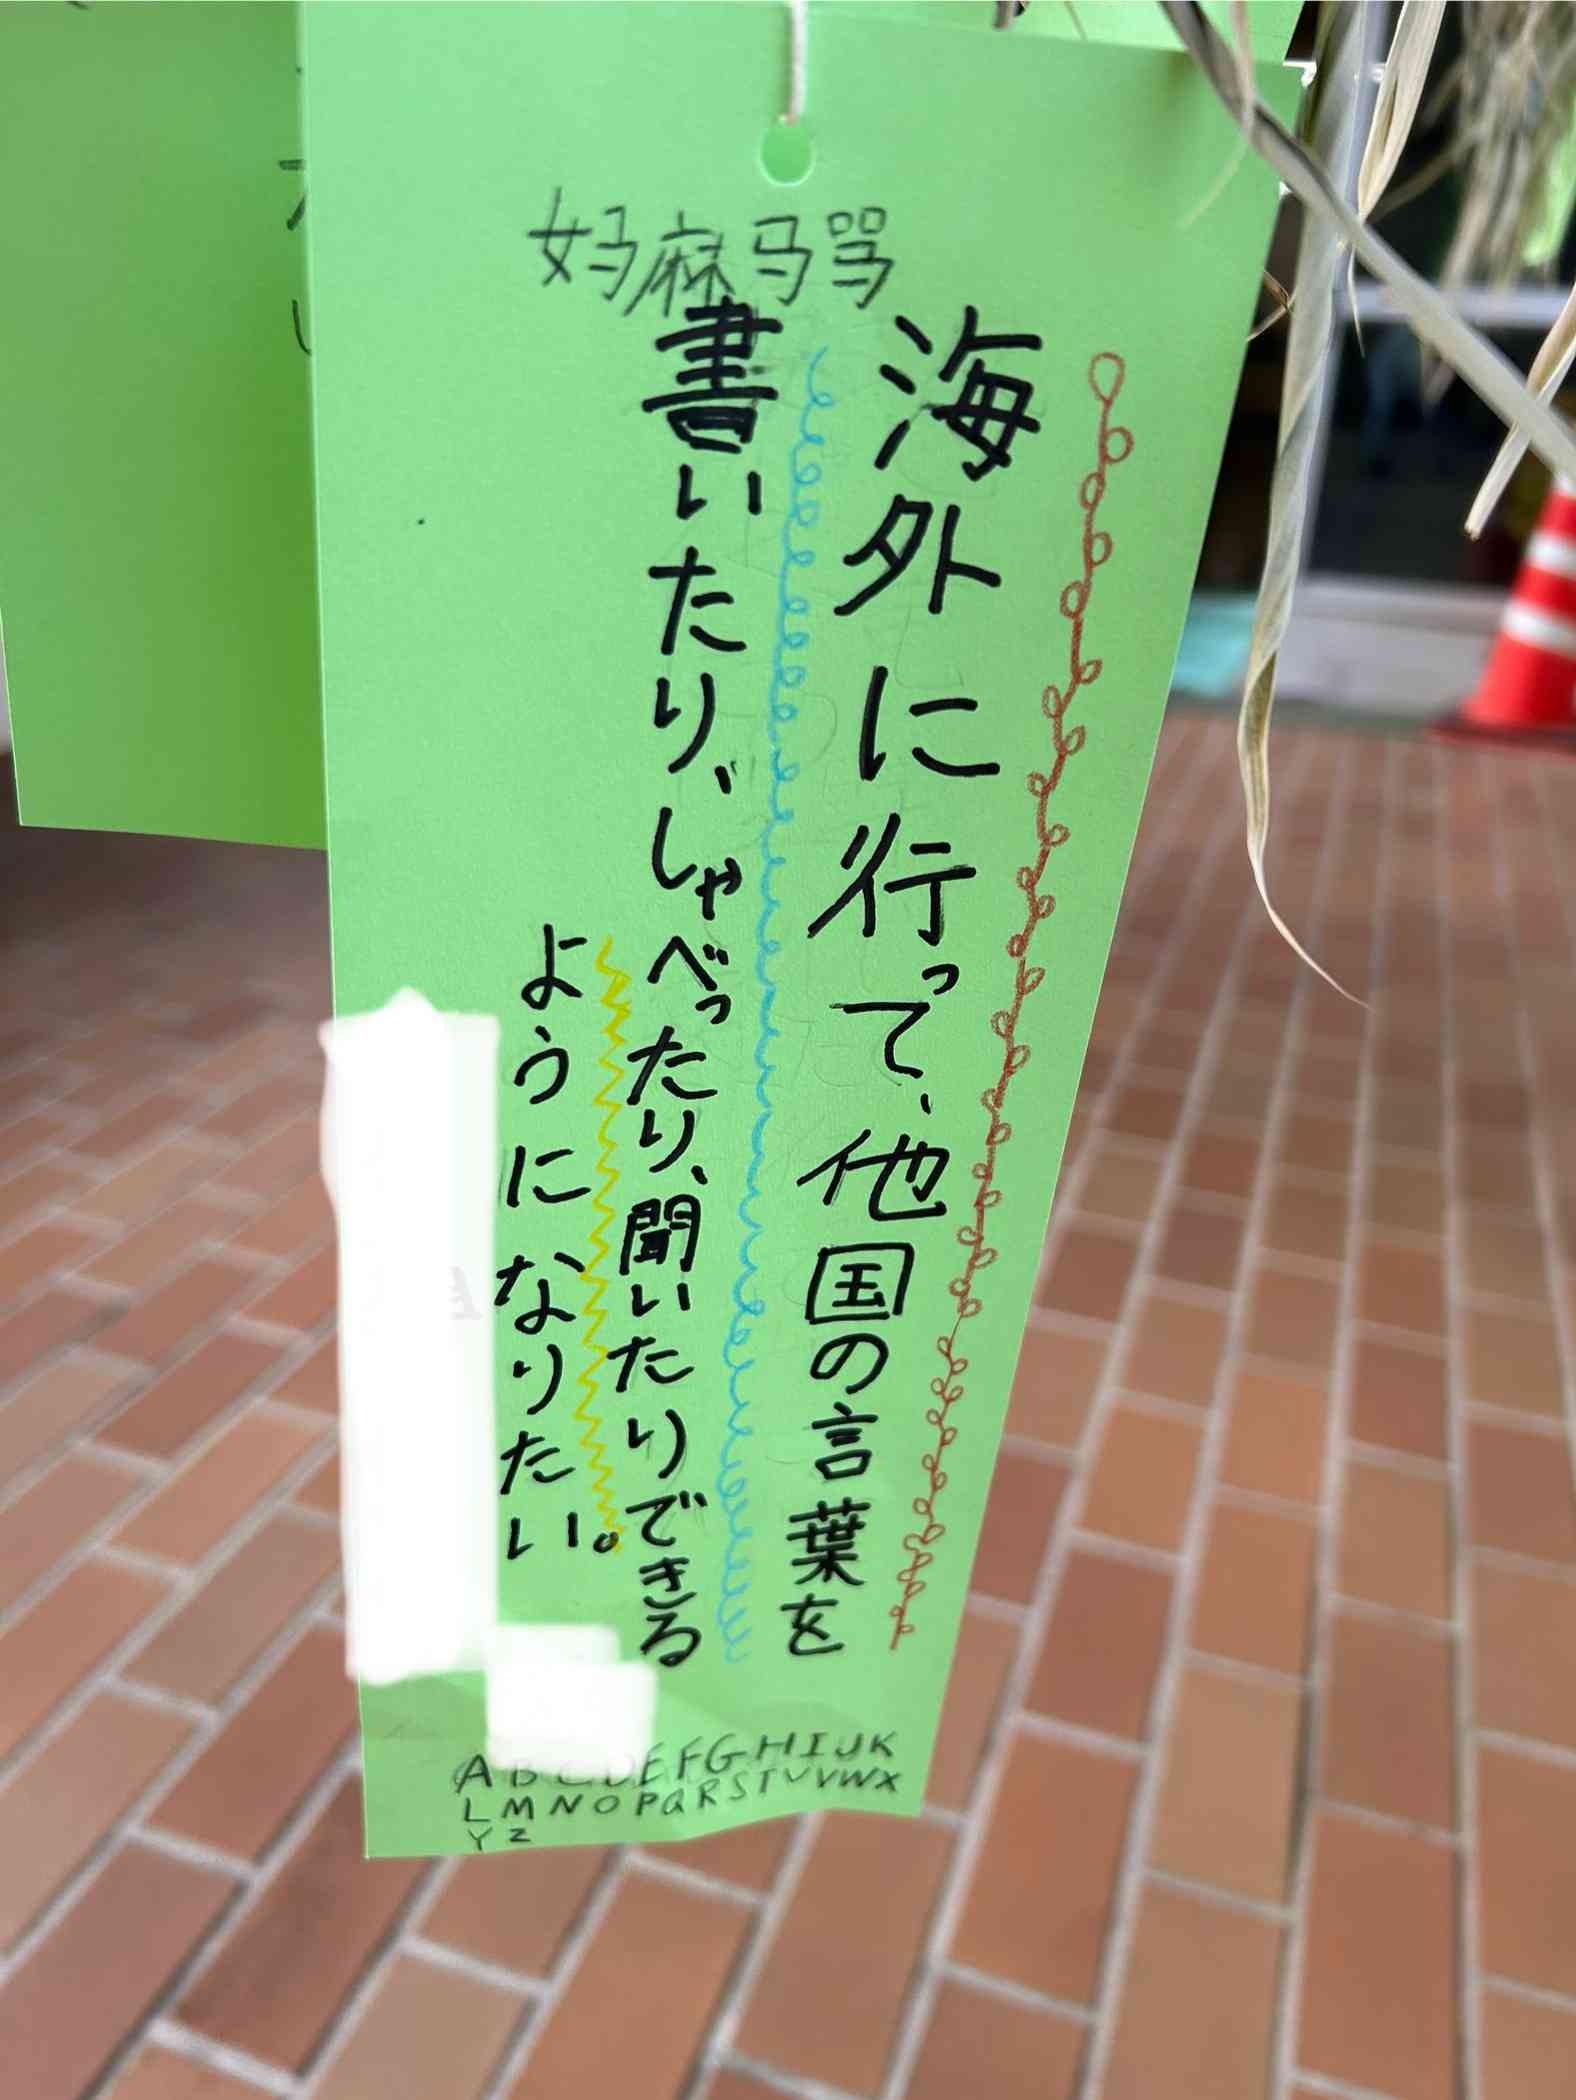 妈麻马骂
海外に行って、他国の言葉を
書いたり、しゃべったり、聞いたりできる
ようになりたい。
ABCDEFGHIJK
LMNOPQRSTUVWX
YZ